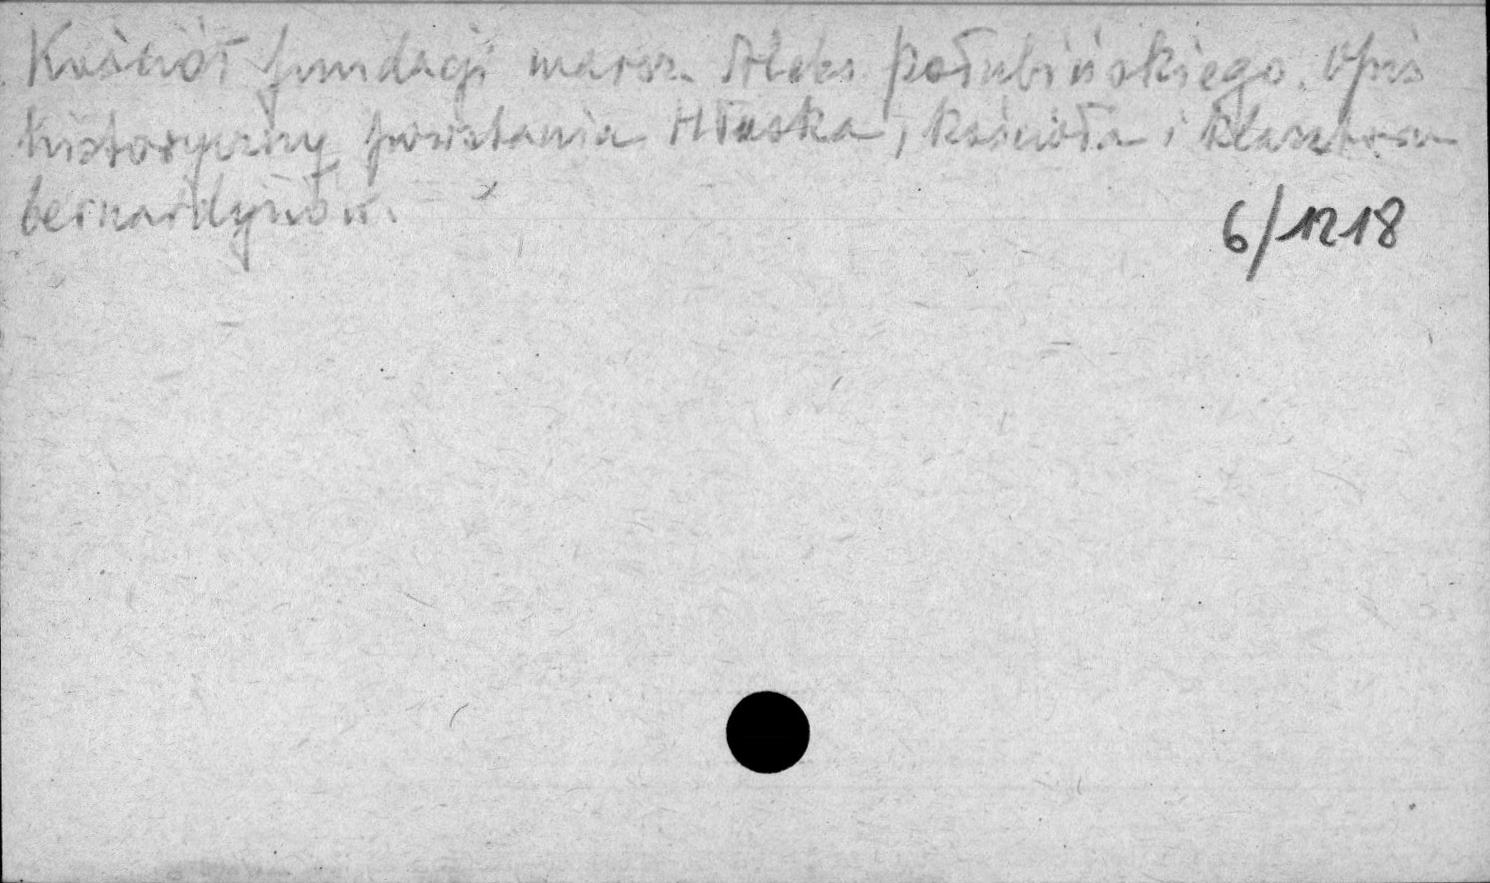 Kościół fundacji marsz. Aleks Połubińskiego. Opis
historyczny powstania Hłuska, kościoła i klasztoru
bernardynów.
6/1218